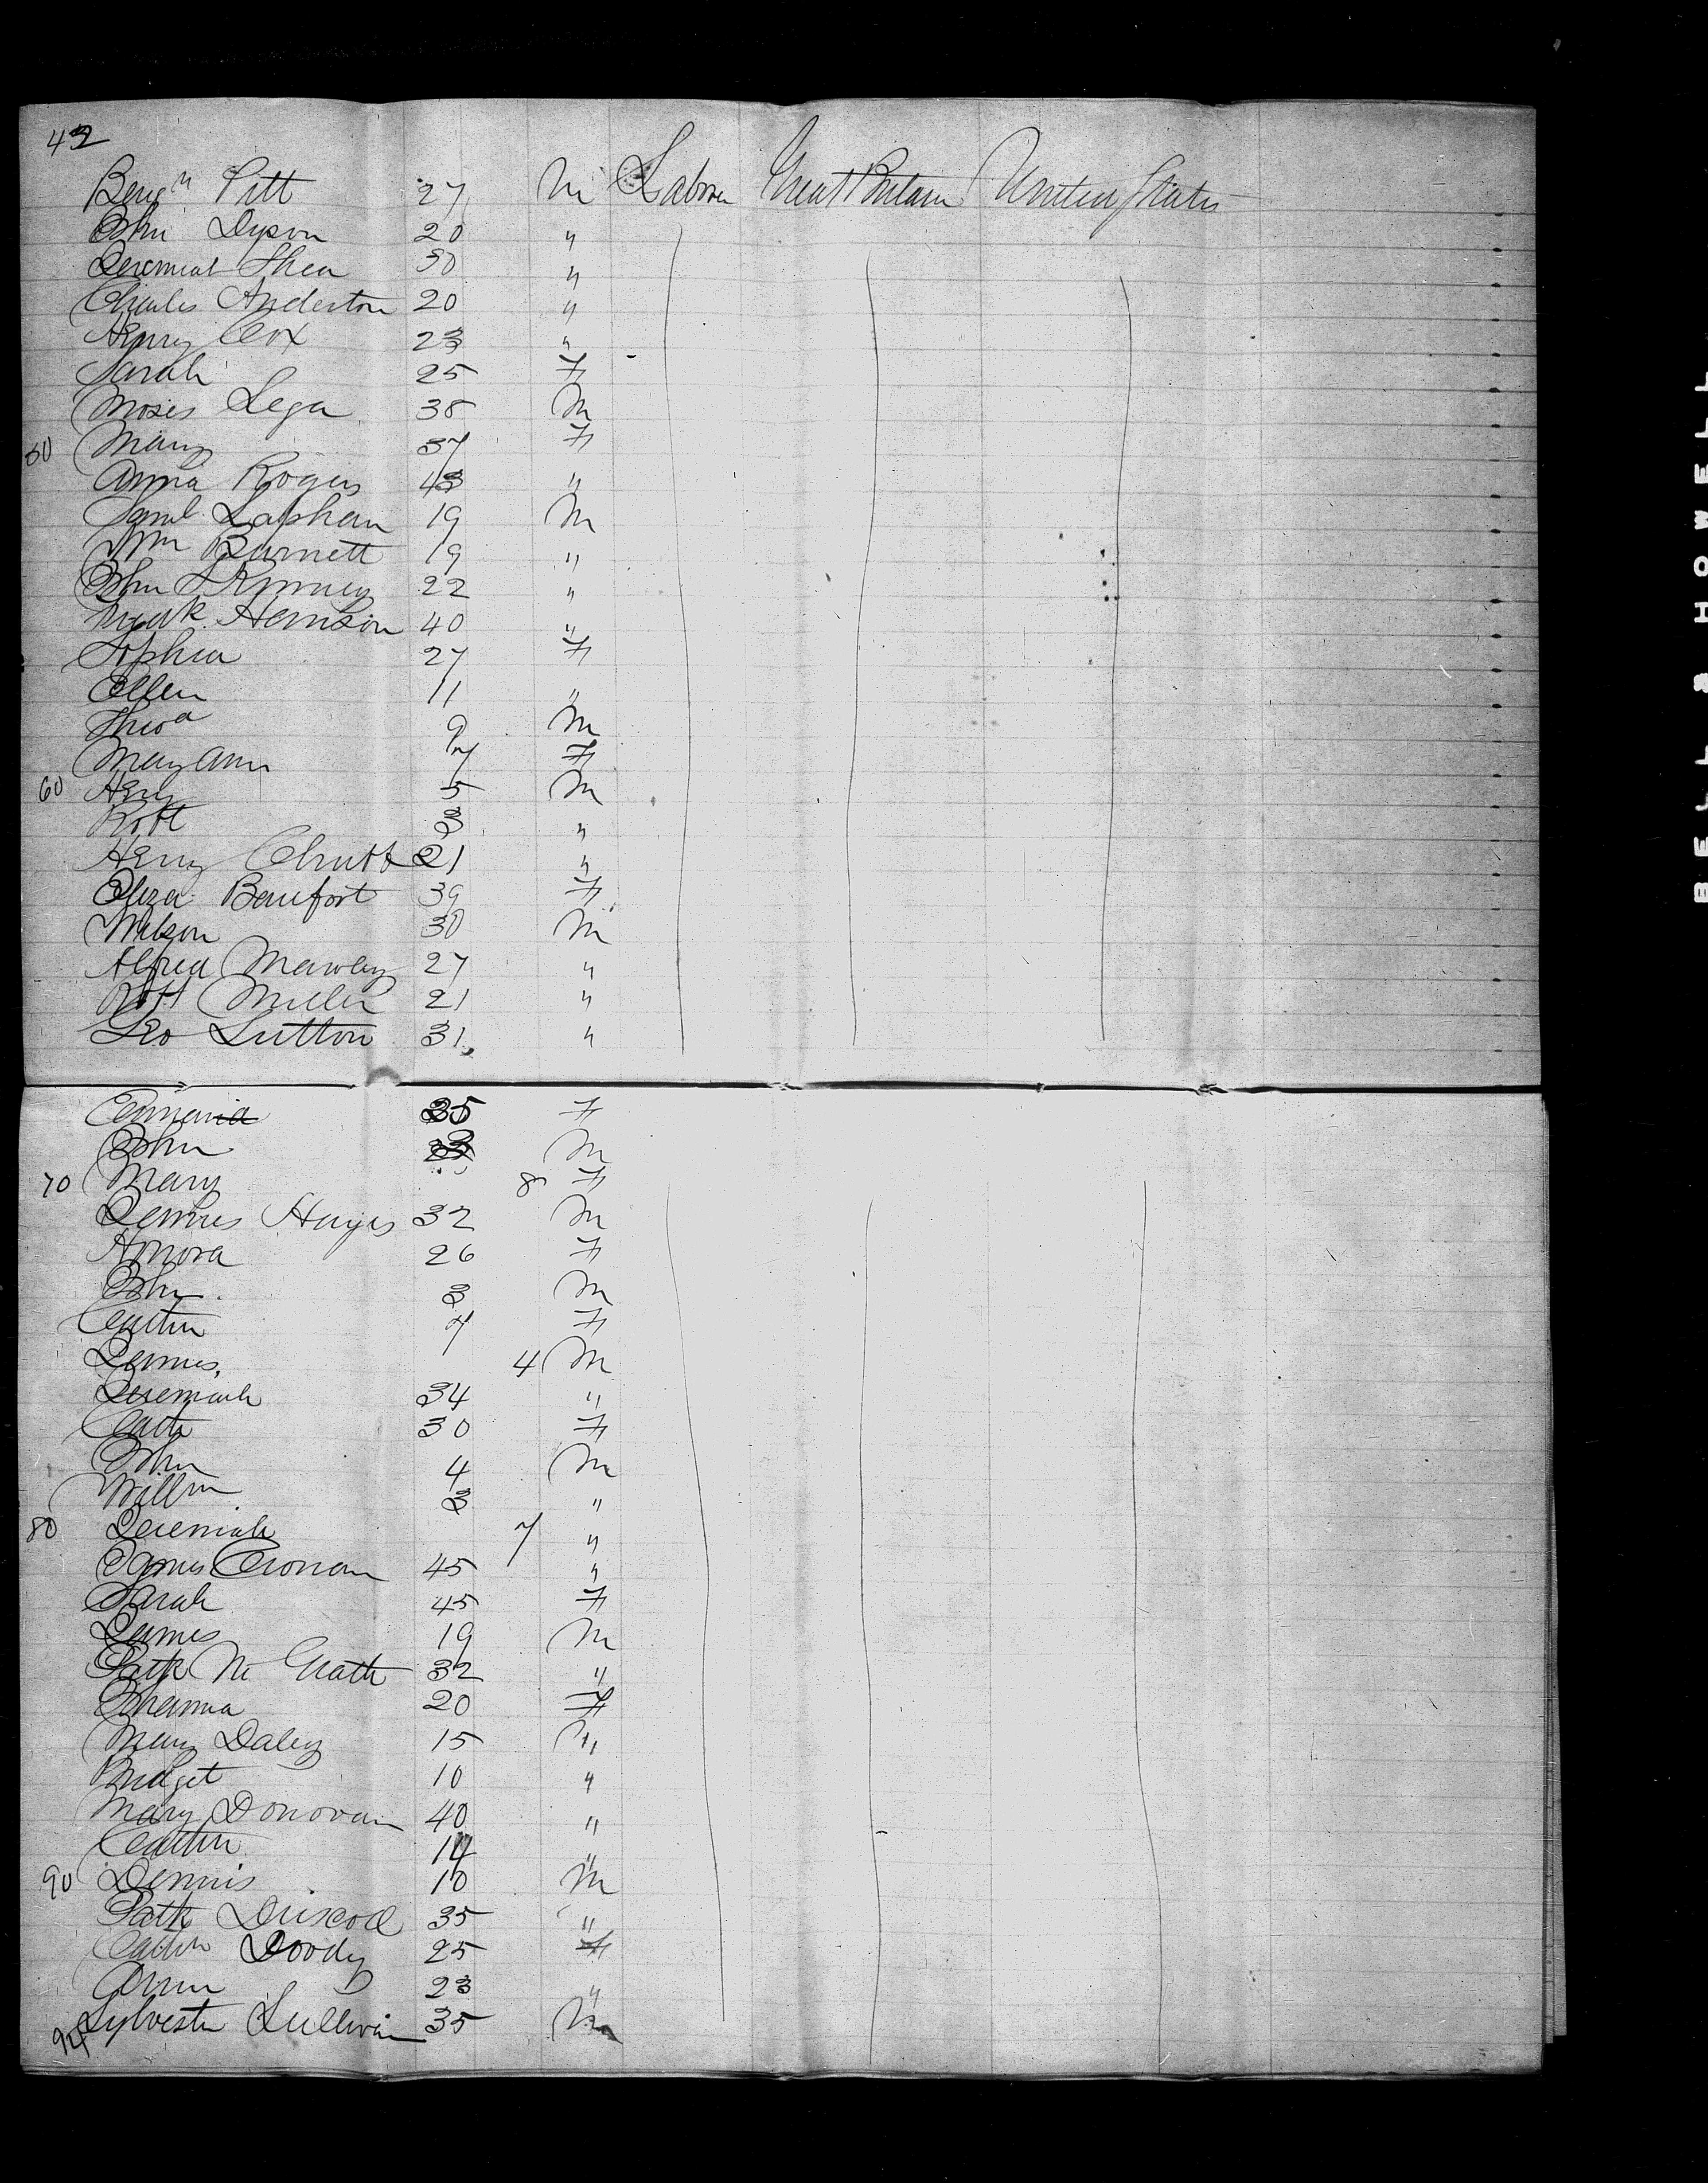 42
Benj^n Pitt 27 M Labour Great Britain United States
John Dyson 20 "
Jeremiah Shea 30 "
Charles Anderton 20 "
Henry Cox 23 "
Sarah 25 F
Moses Lega 38 M
50 Mary 37 F
Anna Rogers 43 "
Saml. Lapham 19 M
Wm Burnett 19 "
John 22 "
40 "
Sophia 27 F
Ellen 11 "
Theo^d 9 M
Mary Ann 7 F
60 Heny 5 M
Robt 3 "
Henry 21 "
Eliza Beaufort 39 F
Wilson 30 M
Alfred Mawley 27 "
Robt Miller 21 "
Geo Sutton 31 "
35 F
John M
70 Mary 8 F
Dennis Hayes 32 M
Honora 26 F
John 3 M
Cathn 7 F
Dennis 4 M
Jeremiah 34 "
Cath 30 F
John 4 M
Willm 3 "
80 Jeremiah 7 "
James Cronan 45 "
Sarah 45 F
James 19 M
Patk Mc Grath 32 "
Johanna 20 F
Mary Daley 15 "
Bridget 10 "
Mary Donovan 40 "
Cathn 14 "
90 Dennis 10 M
Patk Driscoll 35 "
Cathn Doody 25 F
Ann 23 "
94 Sylvester Sullivan 35 M
BELL & HOWELL